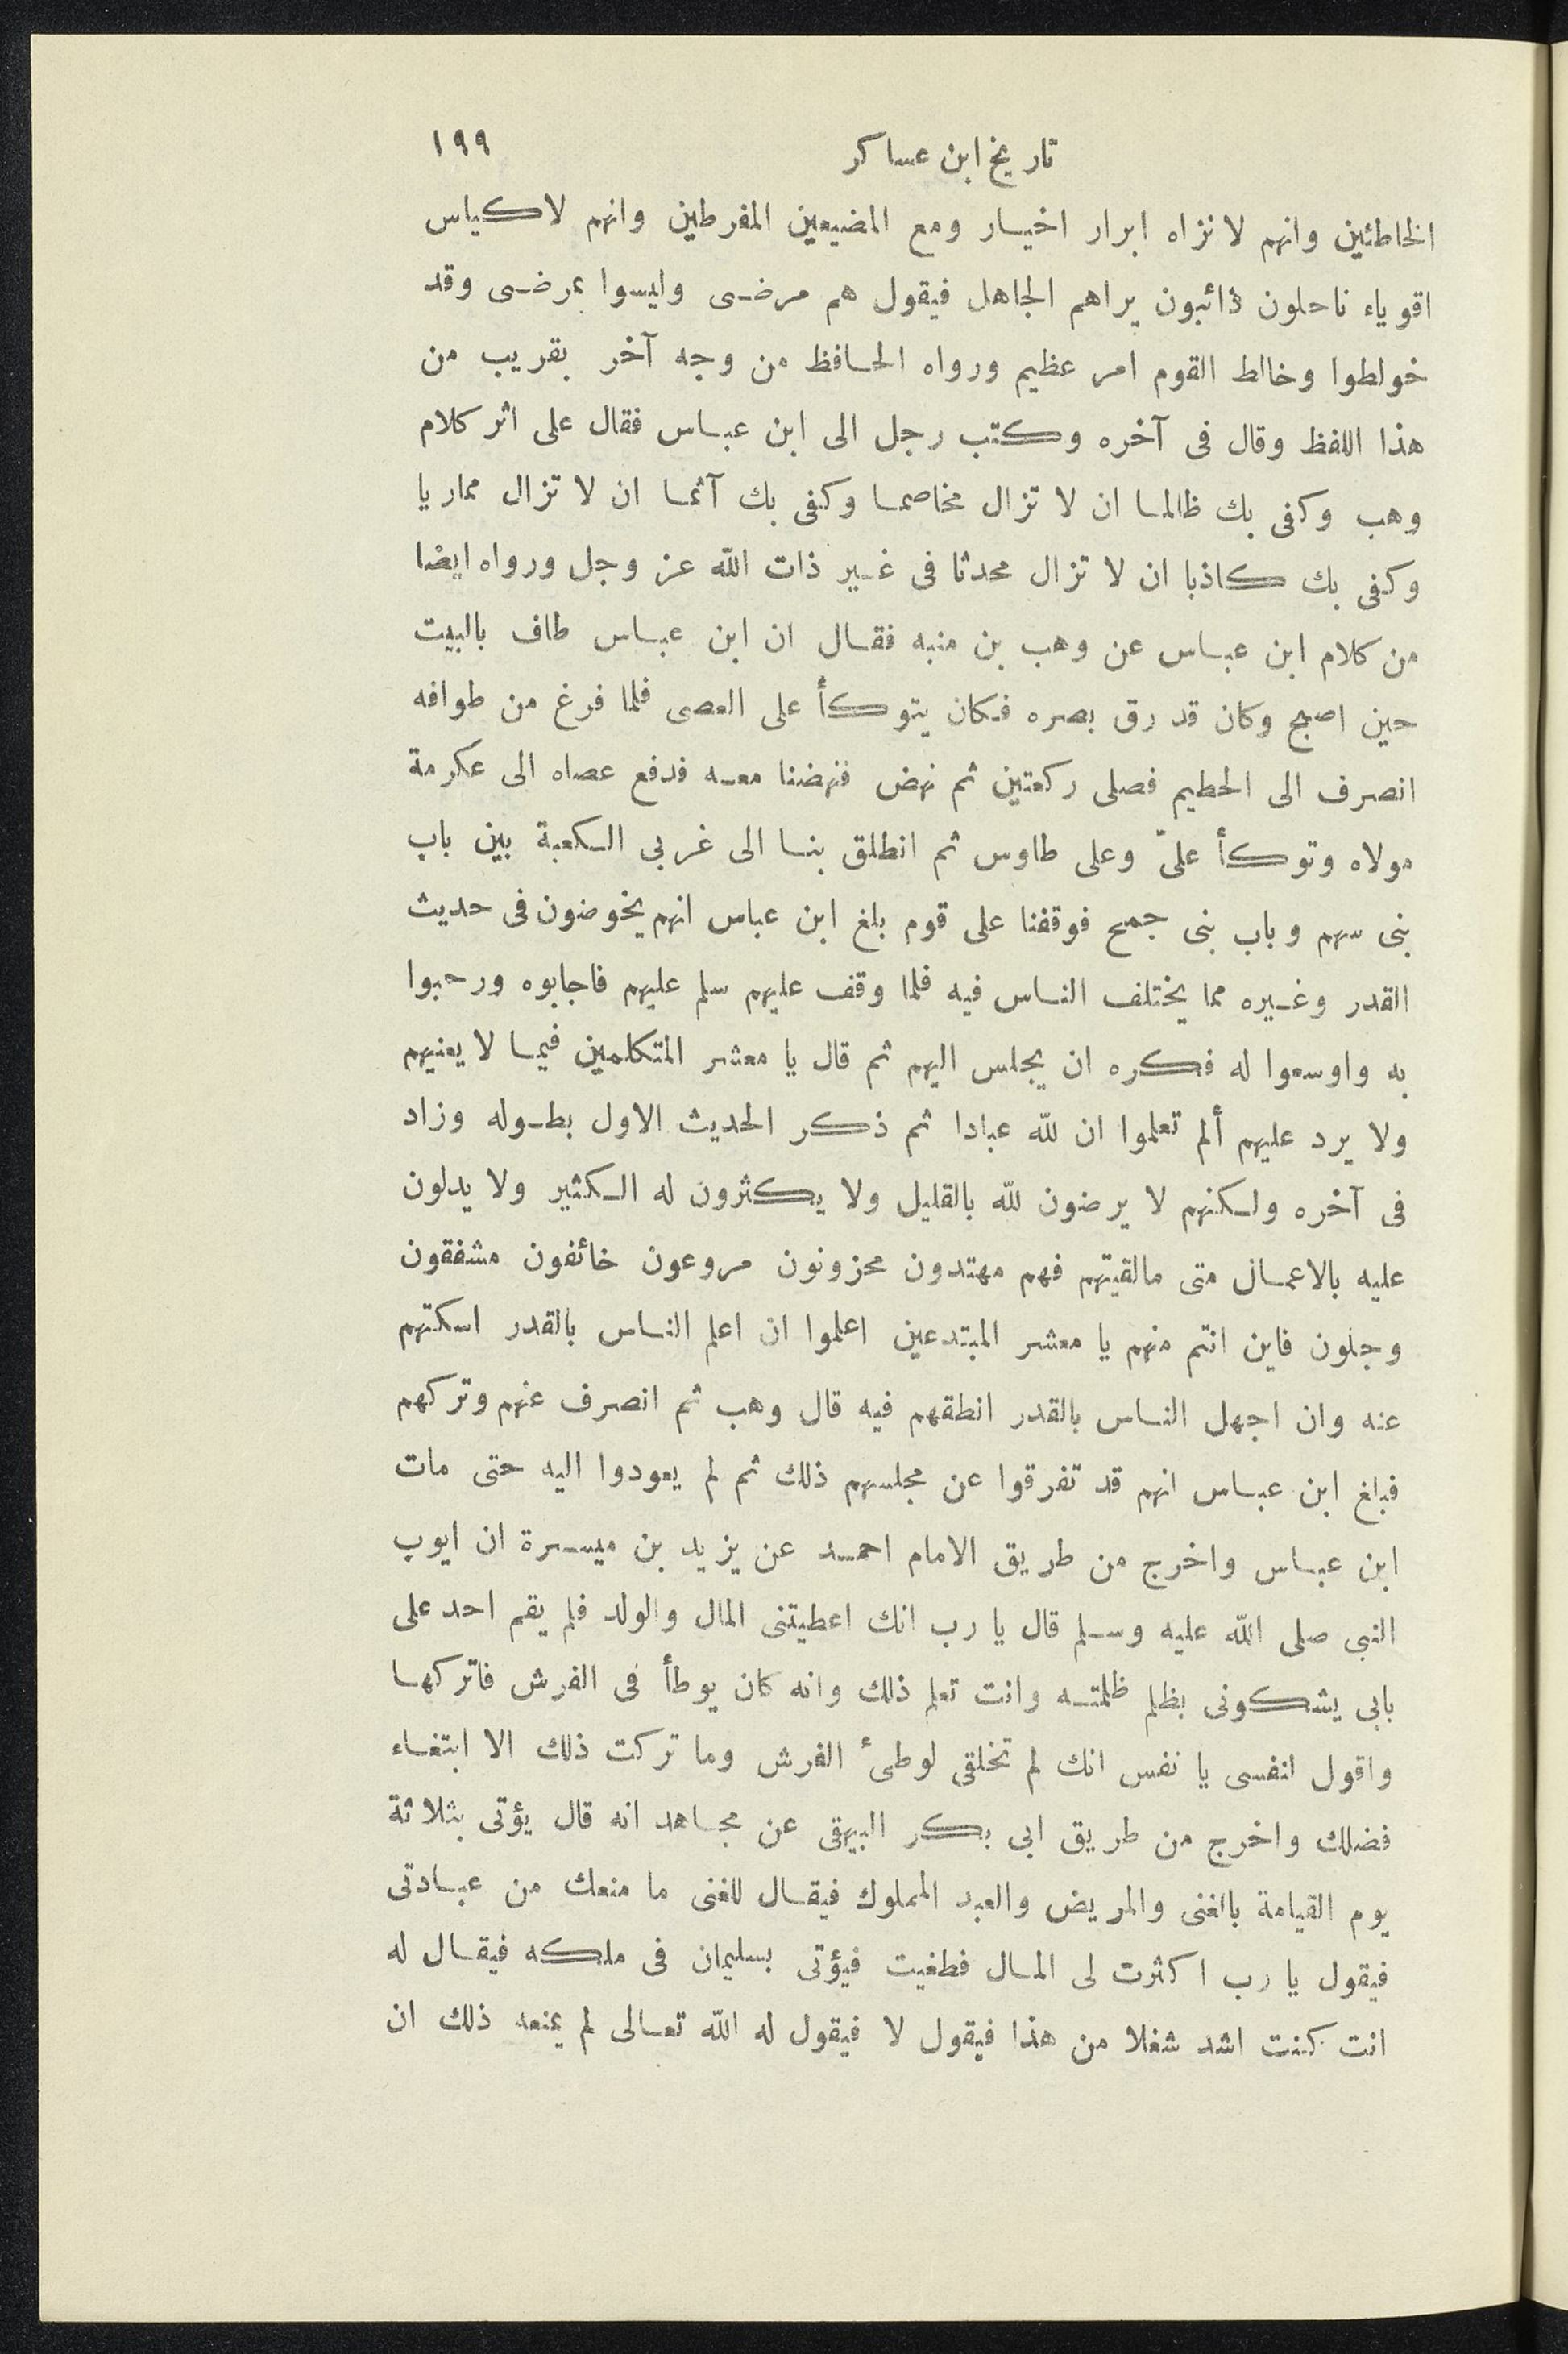 تاريخ ابن عساكر ١٩٩
الخاطئين وانهم لانزاه ابرار اخيار ومع المضيعين المفرطين وانهم لاكياس
اقوياء ناحلون ذائبون يراهم الجاهل فيقول هم مرضى وليسوا بمرضى وقد
خولطوا وخالط القوم امر عظيم ورواه الحافظ من وجه آخر بقريب من
هذا اللفظ وقال فى آخره وكتب رجل الى ابن عباس فقال على اثر كلام
وهب وكفى بك ظالما ان لا تزال مخاصما وكفى بك آثما ان لا تزال مماريا
وكفى بك كاذبا ان لا تزال محدثا فى غير ذات الله عز وجل ورواه ايضا
من كلام ابن عباس عن وهب بن منبه فقال ان ابن عباس طاف بالبيت
حين اصبح وكان قد رق بصره فكان يتوكأ على العصى فلما فرغ من طوافه
انصرف الى الحطيم فصلى ركعتين ثم نهض فنهضنا معه فدفع عصاه الى عكرمة
مولاه وتوكأ علىّ وعلى طاوس ثم انطلق بنا الى غربى الكعبة بين باب
بنى سهم وباب بنى جمح فوقفنا على قوم بلغ ابن عباس انهم يخوضون فى حديث
القدر وغيره مما يختلف الناس فيه فلما وقف عليهم سلم عليهم فاجابوه ورحبوا
به واوسعوا له فكره ان يجلس اليهم ثم قال يا معشر المتكلمين فيما لا يعنيهم
ولا يرد عليهم ألم تعلموا ان لله عبادا ثم ذكر الحديث الاول بطوله وزاد
فى آخره ولكنهم لا يرضون لله بالقليل ولا يكثرون له الكثير ولا يدلون
عليه بالاعمال متى مالقيتهم فهم مهتدون محزونون مروعون خائفون مشفقون
وجلون فاين انتم منهم يا معشر المبتدعين اعلموا ان اعلم الناس بالقدر اسكتهم
عنه وان اجهل الناس بالقدر انطقهم فيه قال وهب ثم انصرف عنهم وتركهم
فبلغ ابن عباس انهم قد تفرقوا عن مجلسهم ذلك ثم لم يعودوا اليه حتى مات
ابن عباس واخرج من طريق الامام احمد عن يزيد بن ميسرة ان ايوب
النبى صلى الله عليه وسلم قال يا رب انك اعطيتنى المال والولد فلم يقم احد على
بابى يشكونى بظلم ظلمته وانت تعلم ذلك وانه كان يوطأ فى الفرش فاتركها
واقول لنفسى يا نفس انك لم تخلقى لوطئ الفرش وما تركت ذلك الا ابتغاء
فضلك واخرج من طريق ابى بكر البيهقى عن مجاهد انه قال يؤتى بثلاثة
يوم القيامة بالغنى والمريض والعبد المملوك فيقال للغنى ما منعك من عبادتى
فيقول يا رب اكثرت لى المال فطغيت فيؤتى بسليمان فى ملكه فيقال له
انت كنت اشد شغلا من هذا فيقول لا فيقول له الله تعالى لم يمنعه ذلك ان